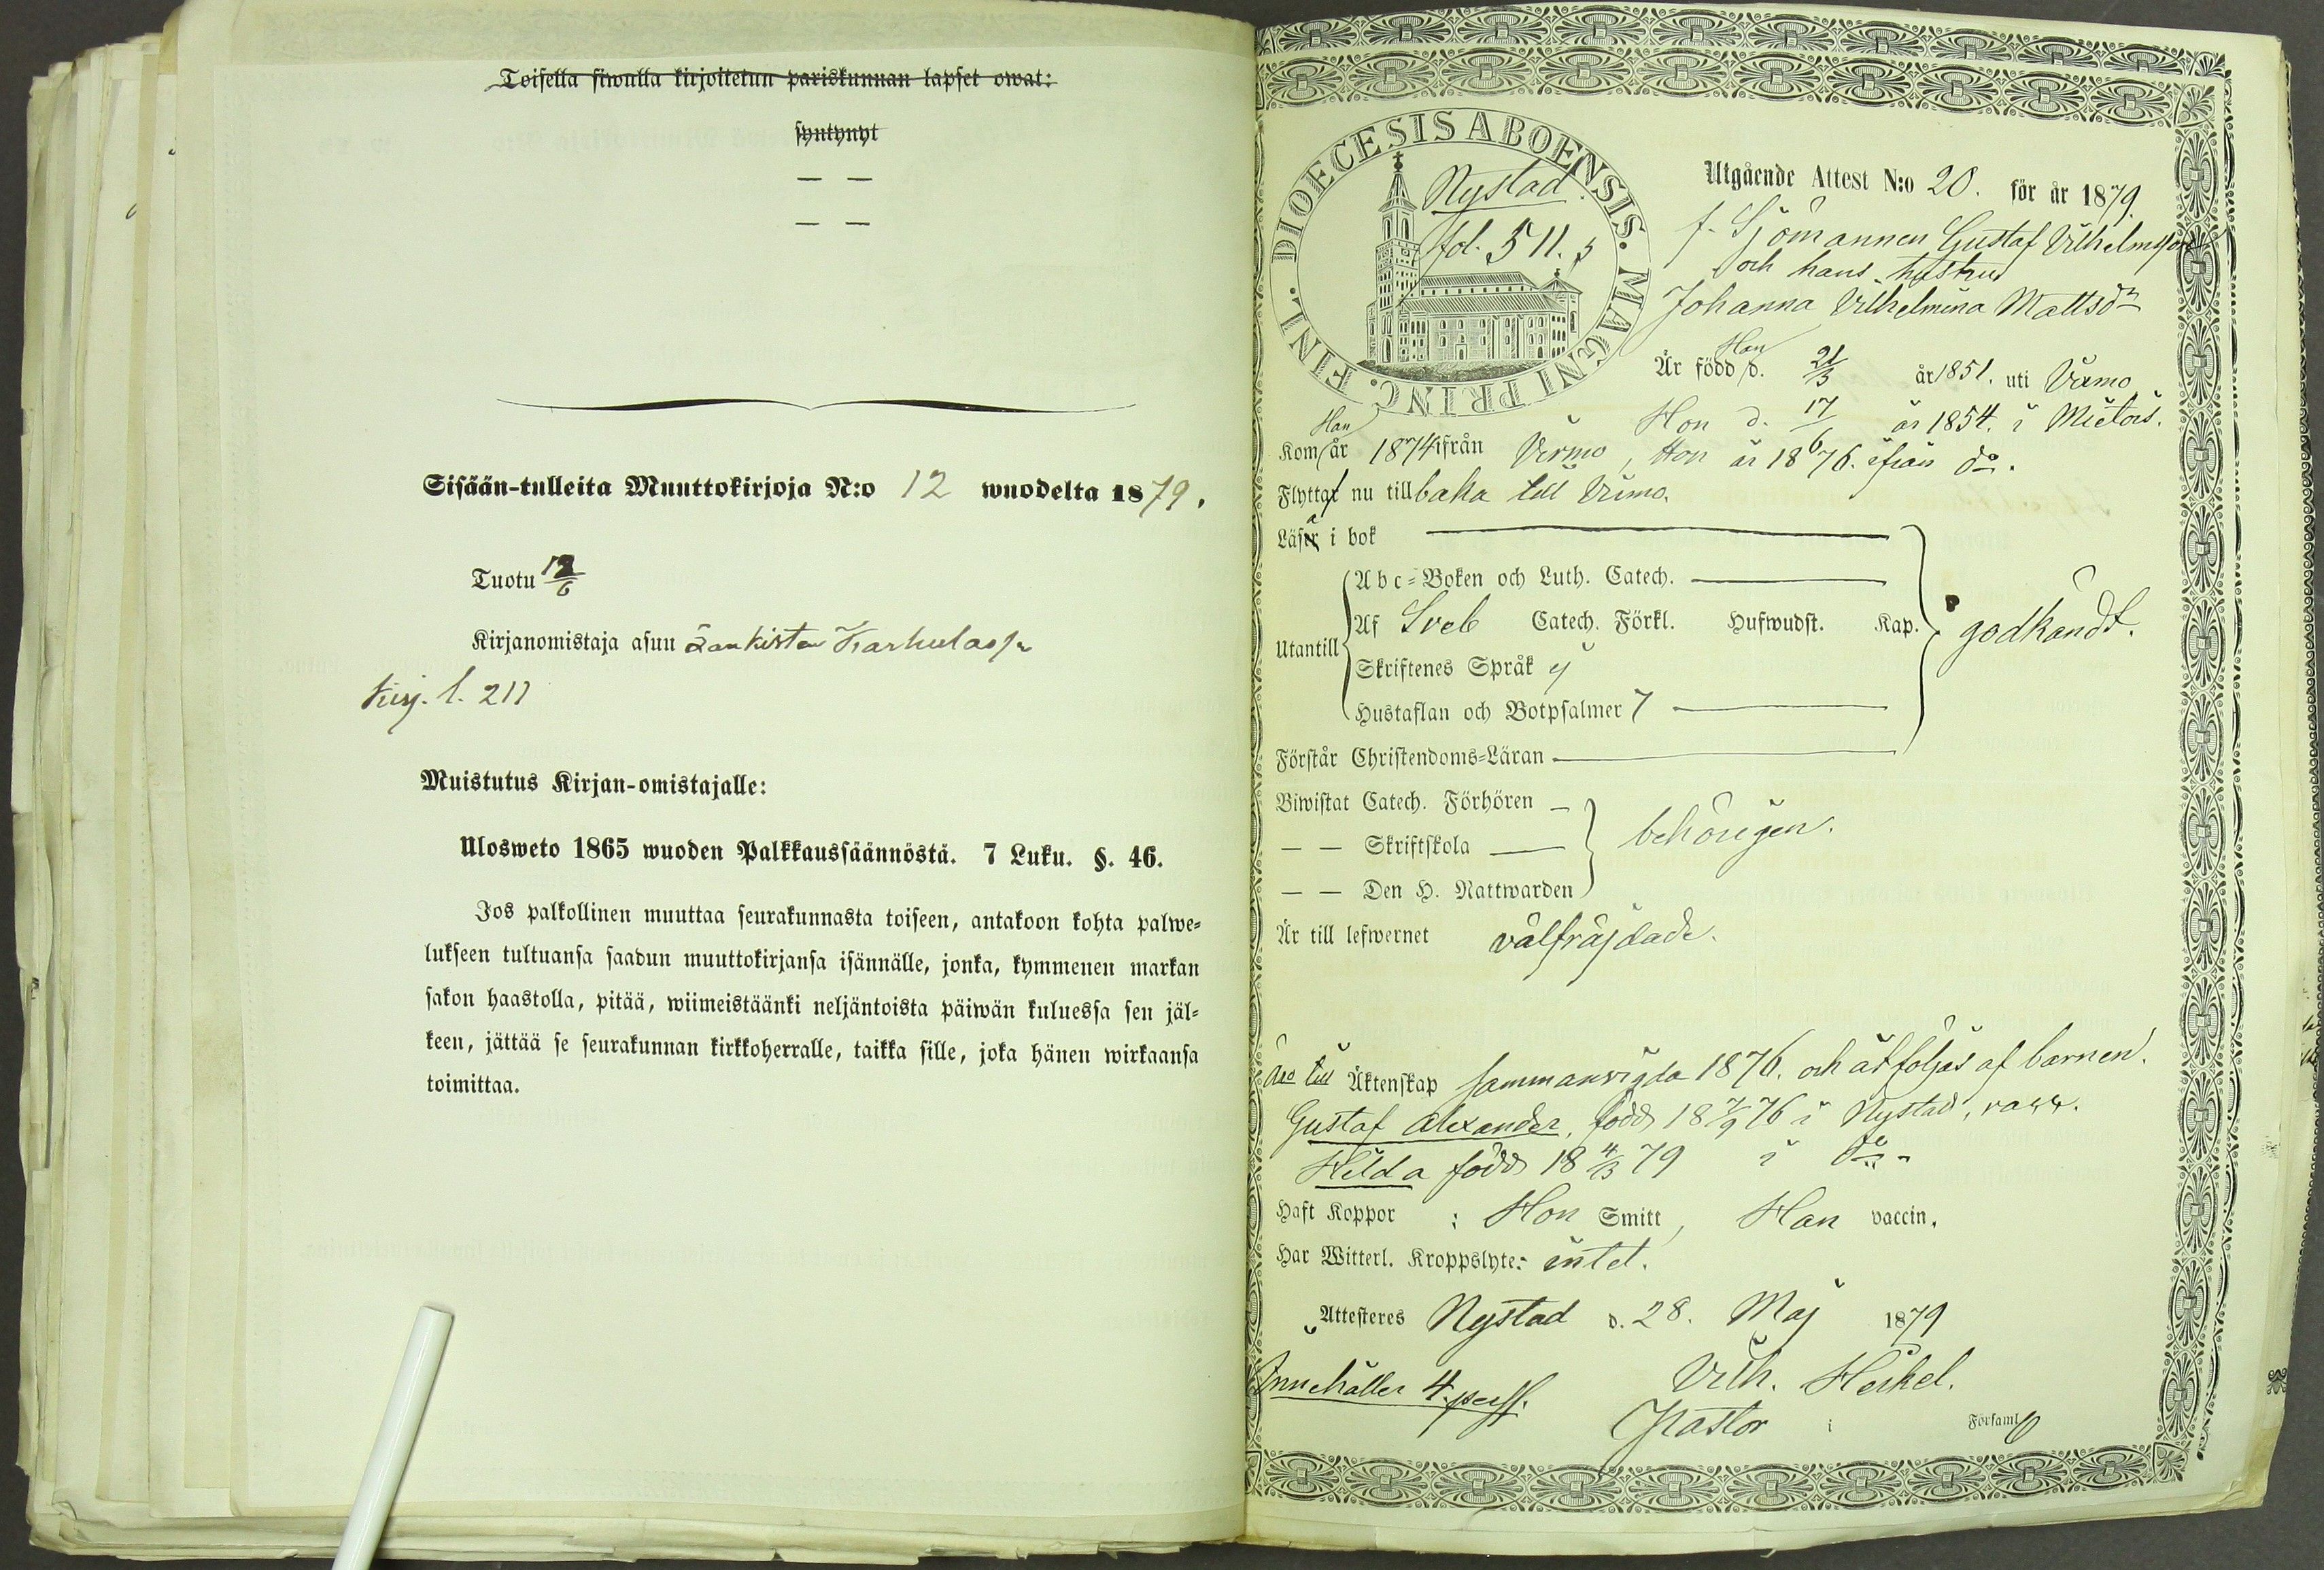 Toisella siwulla kirjoitetun pariskunnan lapset owat:
syntynyt
— —
— —
Sisään-tulleita Muuttokirjoja N:o 12 wuodelta 1879.
Tuotu 12/6
Kirjanomistaja asuu Karhulassa
Kirj. l. 211
Muistutus Kirjan-omistajalle:
Ulosweto 1865 wuoden Palkkaussäännöstä. 7 Luku. §. 46.
Jos palkollinen muuttaa seurakunnasta toiseen, antakoon kohta palwe-
lukseen tultuansa saadun muuttokirjansa isännälle, jonka, kymmenen markan
sakon haastolla, pitää, wiimeistäänki neljäntoista päiwän kuluessa sen jäl-
keen, jättää se seurakunnan kirkkoherralle, taikka sille, joka hänen wirkaansa
toimittaa.
DIOECESIS ABOENSIS. MAGNI PRINC. FINL.
Nystad
fol. 511.
Utgående Attest N:o 20. för år 1879.
f. Sjömannen Gustaf Vilhelmsson
och hans hustru
Johanna Vilhelmina Mattsdr
Han
Är född d. 21/3 år 1851. uti Virmo
Hon d. 17/6 år 1854. i Mietois.
Han
Kom år 1874 ifrån Virmo, Hon år 1876. ifrån do.
Flytta nu tillbaka till Virmo.
Läsa i bok
Utantill
Abc-Boken och Luth. Catech.
Af Sveb Catech. Förkl. Hufwudst. Kap.
Skriftenes Språk ej
Hustaflan och Botpsalmer 7
godkändt.
Förstår Christendoms-Läran
Biwistat Catech. Förhören —
— — Skriftskola —
— — Den H. Nattwarden
behörigen.
Är till lefwernet välfräjdade.
Äro till Äktenskap sammanvigda 1876. och åtföljas af barnen
Gustaf Alexander, född 18 7/9 76 i Nystad, vacc.
Hilda född 18 4/3 79 i do
Haft Koppor : Hon Smitt, Han vaccin.
Har Witterl. Kroppslyte: intet.
Attesteres Nystad d. 28. Maj 1879
Innehåller 4. pers.
Vilh. Heikel.
Pastor i Församl